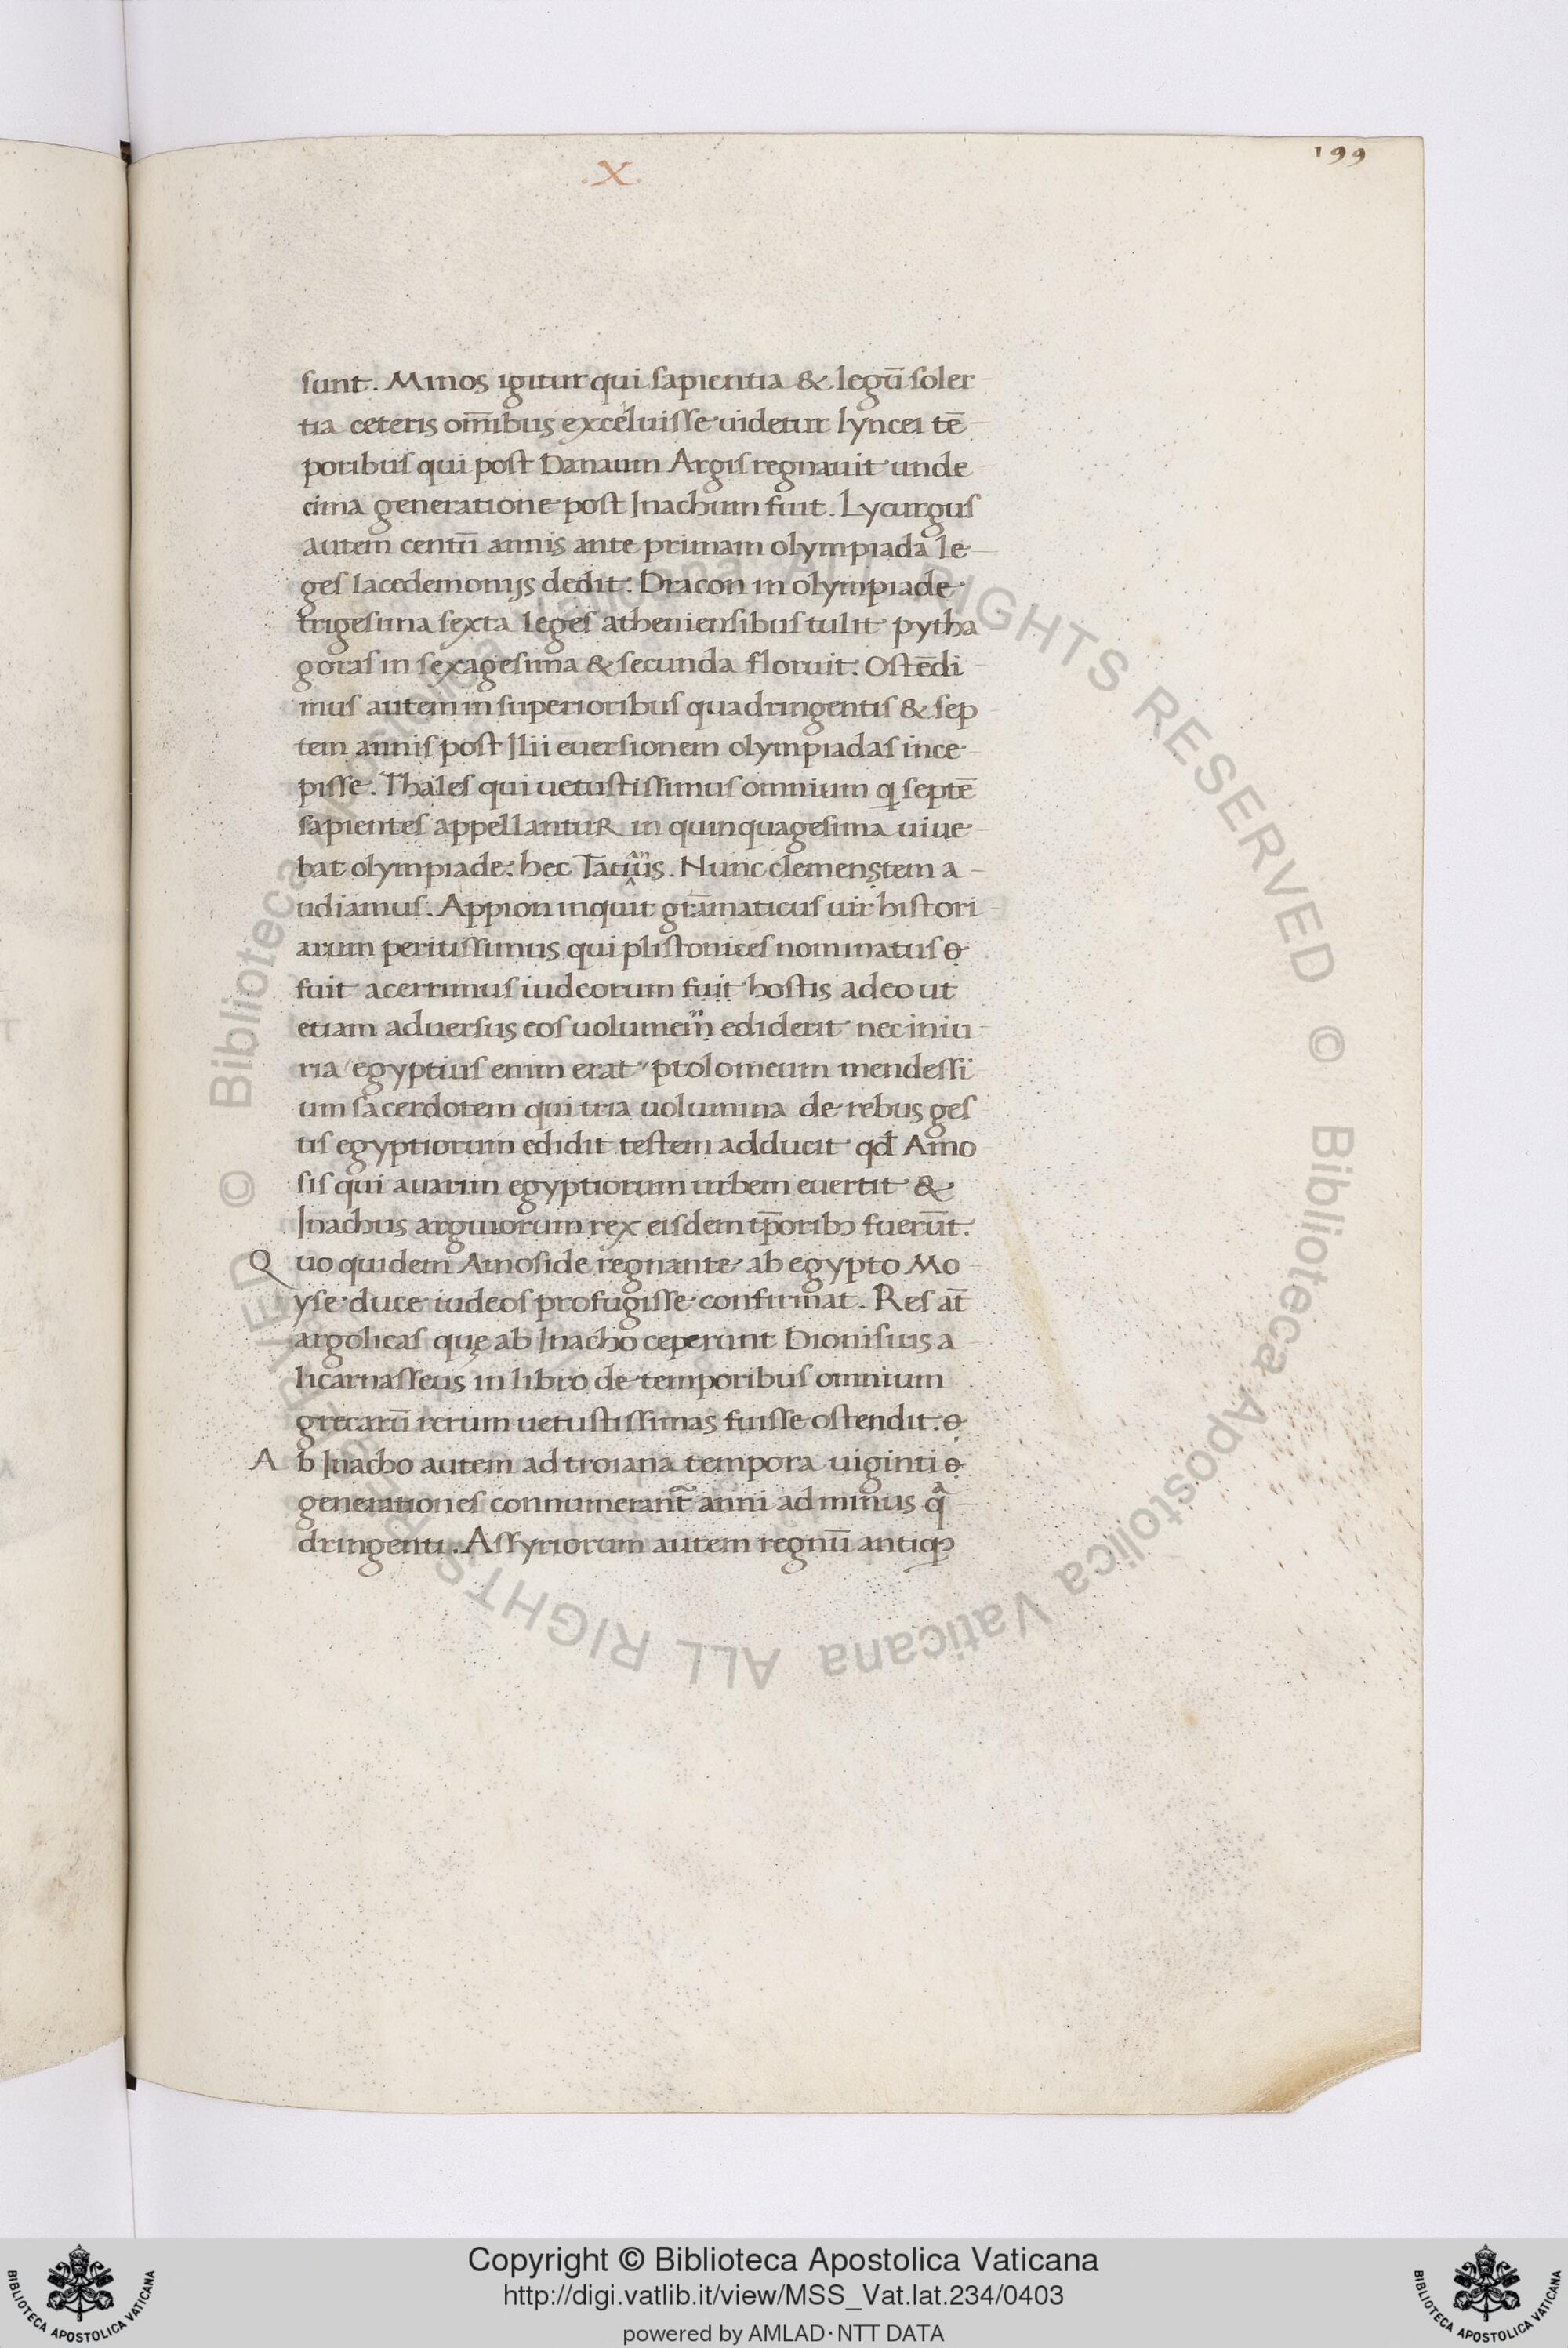 199
.X.
sunt. Minos igitur qui sapientia & legū soler
tia ceteris om̄ibus excelluisse uidetur lyncei tē
poribus qui post Danaum Argis regnauit unde
cima generatione post Inachum fuit. Lycurgus
autem centū annis ante primam olympiada le
ges lacedemonijs dedit: Dracon in olympiade
trigesima sexta leges atheniensibus tulit pytha
goras in sexagesima & secunda floruit: Ostēdi
mus autem in superioribus quadringentis & sep
tem annis post Ilii euersionem olympiadas ince
pisse. Thales qui uetustissimus omnium q septē
sapientes appellantur in quinquagesima uiue
bat olympiade: hec Tatianus. Nunc clemenstem a
udiamus. Appion inquit grāmaticus uir histori
arum peritissimus qui plistonices nominatus
fuit acerrimus iudeorum fuit hostis adeo ut
etiam aduersus eos uolumen ediderit nec iniu
ria egyptius enim erat ptolomeum mendessi
um sacerdotem qui tria uolumina de rebus ges
tis egyptiorum edidit testem adducit qđ Amo
sis qui auarim egyptiorum urbem euertit &
Inachus arguiorum rex eisdem tp̄oribꝫ fuerūt.
Quo quidem Amoside regnante ab egypto Mo
yse duce iudeos profugisse confirmat. Res at̄
argolicas quę ab Inacho ceperunt Dionisius a
licarnasseus in libro de temporibus omnium
grecarū rerum uetustissimas fuisse ostendit.
Ab Inacho autem ad troiana tempora uiginti
generationes connumerant̃ anni ad minus qᵃ
dringenti. Assyriorum autem regnū antiqꝫ
© Biblioteca Apostolica Vaticana ALL RIGHTS RESERVED © Biblioteca Apostolica Vaticana ALL RIGHTS RESERVED
BIBLIOTECA APOSTOLICA VATICANA
Copyright © Biblioteca Apostolica Vaticana
http://digi.vatlib.it/view/MSS_Vat.lat.234/0403
powered by AMLAD·NTT DATA
BIBLIOTECA APOSTOLICA VATICANA